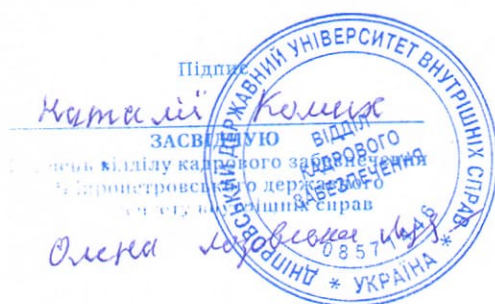 Підпис
Наталії Комих
ЗАСВІДЧУЮ
відділу кадрового забезпечення
державного
внутрішніх справ
Олена
ДНІПРОВСЬКИЙ ДЕРЖАВНИЙ УНІВЕРСИТЕТ ВНУТРІШНІХ СПРАВ
* УКРАЇНА *
ВІДДІЛ
КАДРОВОГО
ЗАБЕЗПЕЧЕННЯ